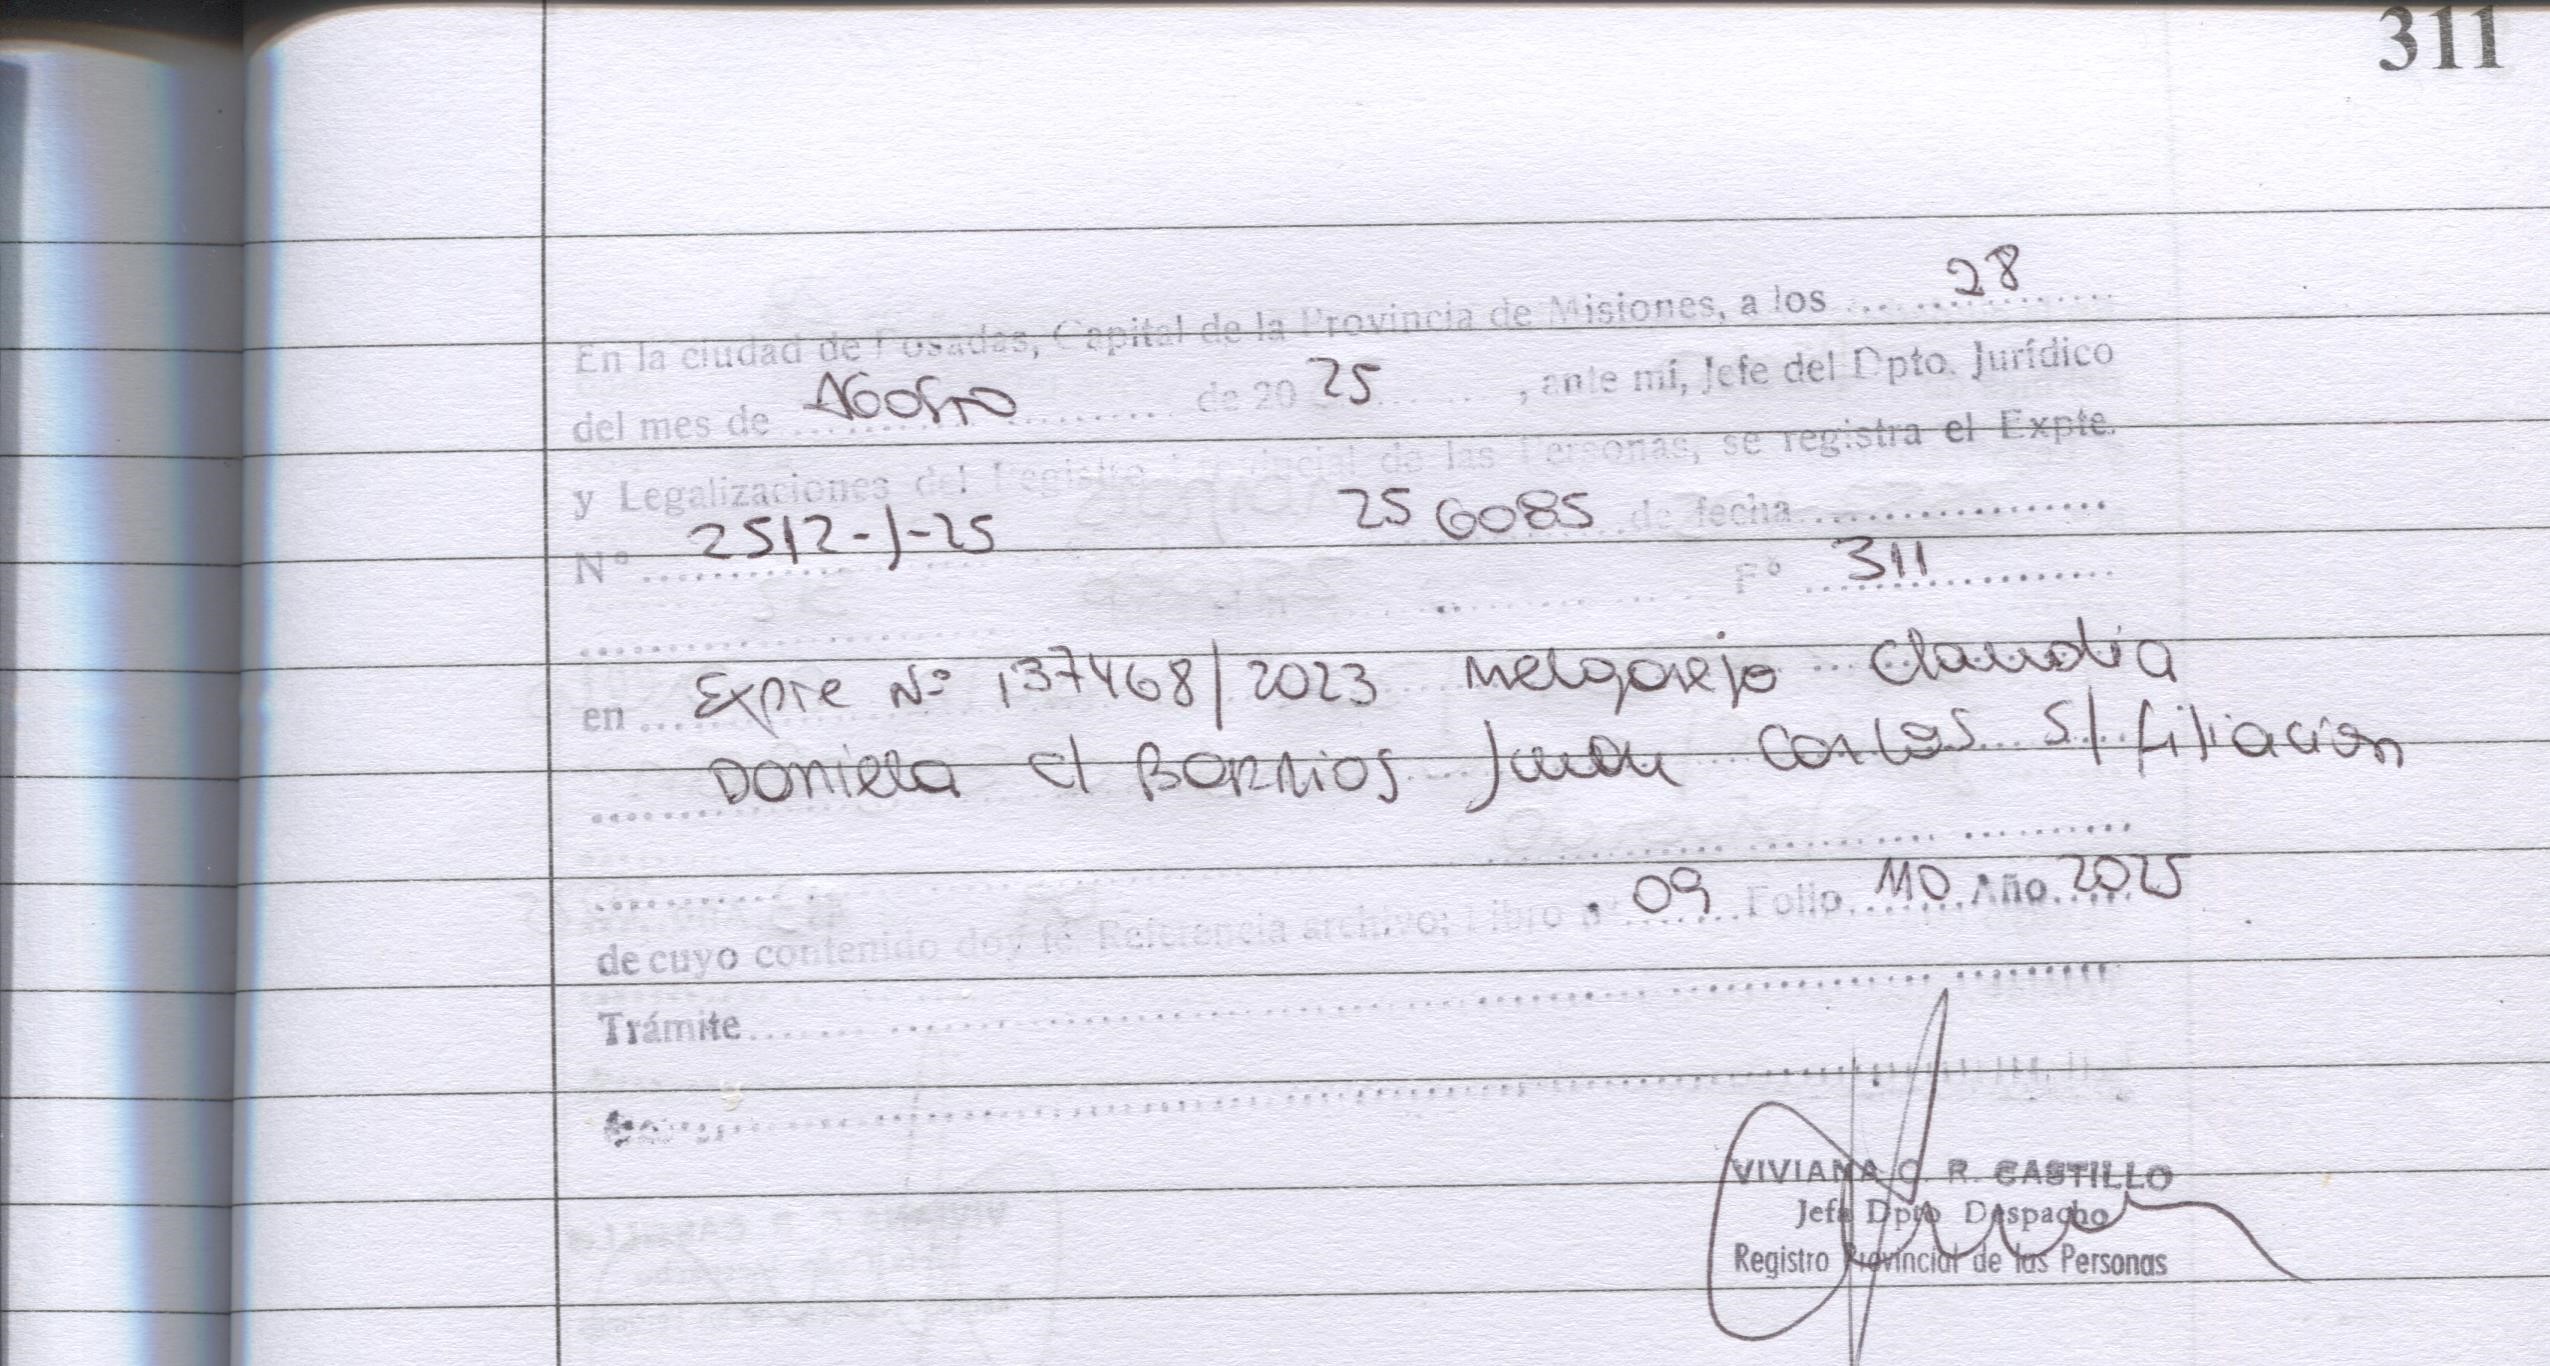 311
En la ciudad de Posadas, Capital de la Provincia de Misiones, a los 28
del mes de Agosto de 20 25, ante mí, Jefe del Dpto. Jurídico
y Legalizaciones del Registro Provincial de las Personas, se registra el Expte.
Nº 2512-J-25 256085 de fecha
Fº 311
en Expte Nº 137468/2023 Melgarejo Claudia
Daniela c/ Barrios Juan Carlos s/ filiación
de cuyo contenido doy fe. Referencia archivo: Libro nº 09 Folio 110 Año 2025
Trámite
VIVIANA C. R. CASTILLO
Jefa Dpto Despacho
Registro Provincial de las Personas